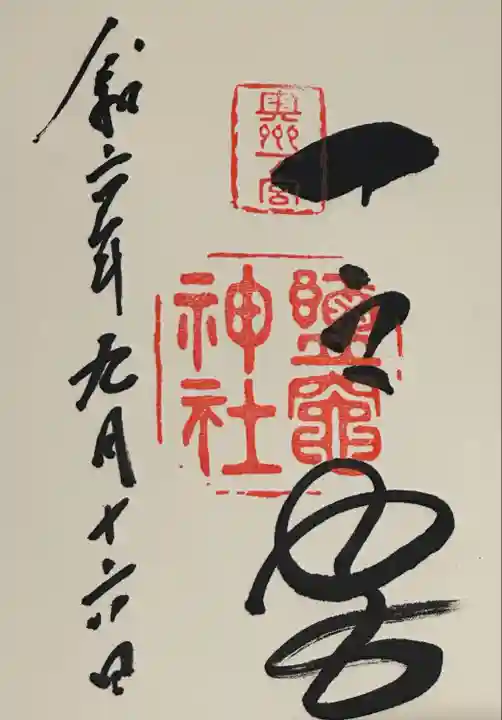 奥州一宮
一之宮
鹽竈
神社
令和六年九月十六日